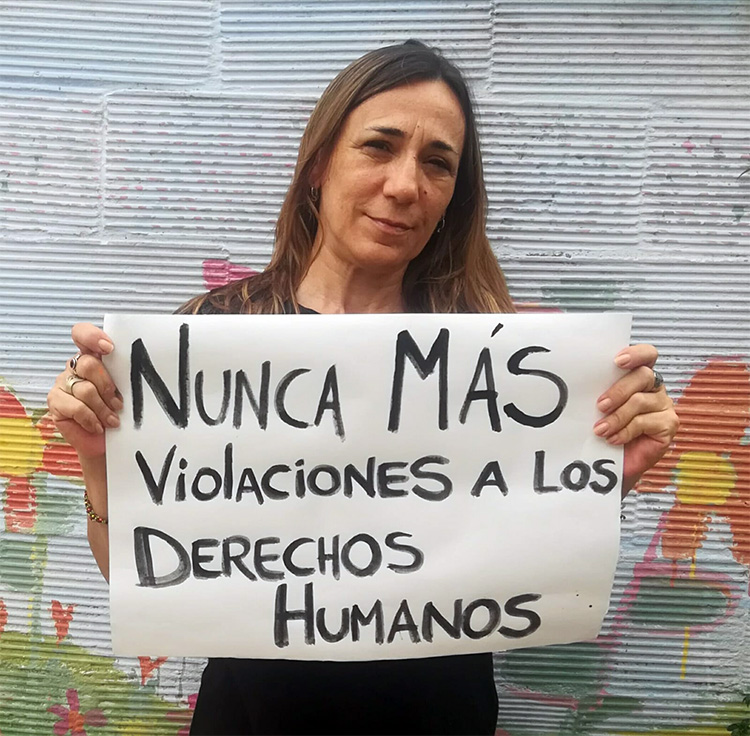 NUNCA MÁS
VIOLACIONES A LOS
DERECHOS
HUMANOS